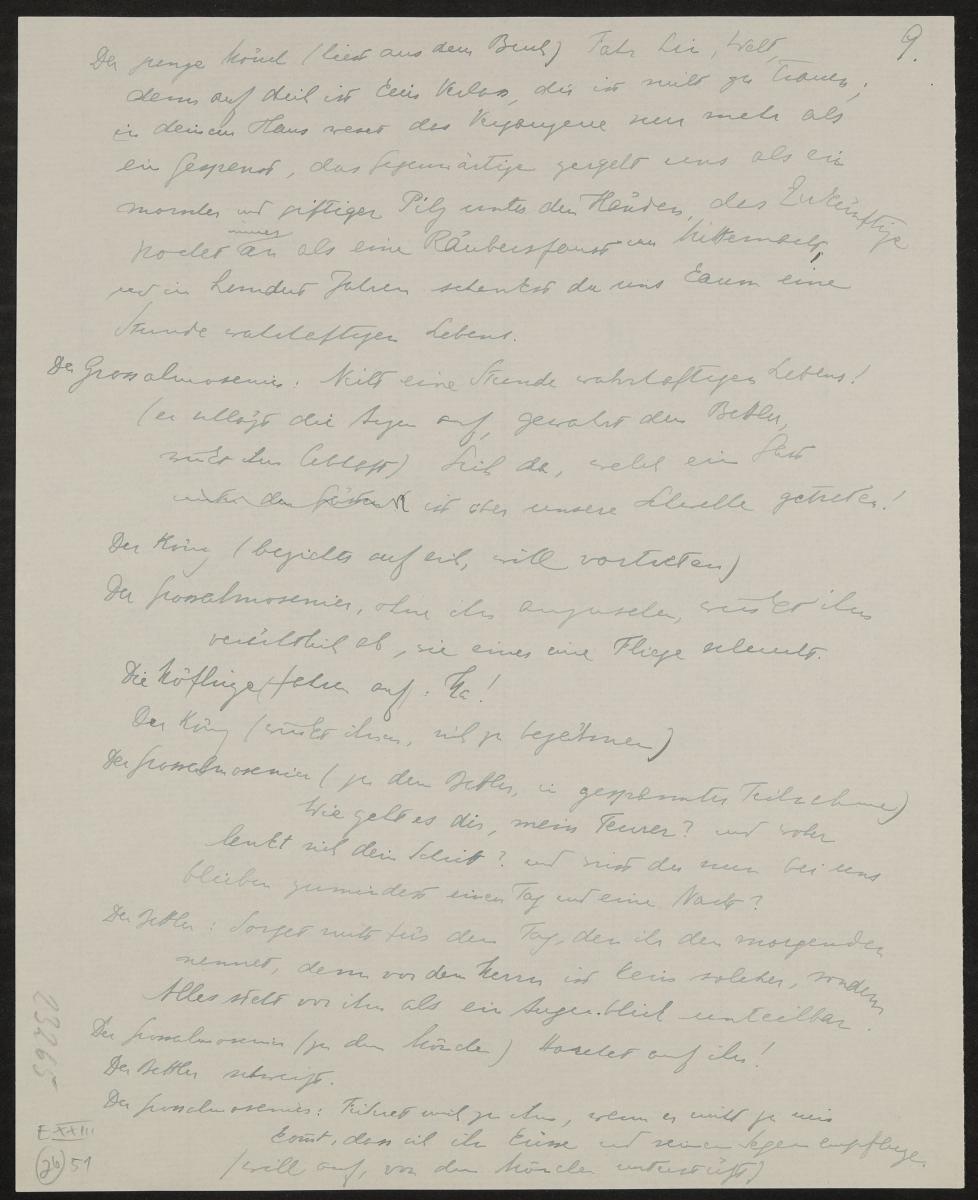 9.
Der junge Mönch (liest aus dem Buch) Fahr hin, Welt,
denn auf dich ist kein Verlass, dir ist nicht zu trauen;
in deinem Haus weset das Vergangene nur mehr als
ein Gespenst, das Gegenwärtige zergeht uns als ein
morscher und giftiger Pilz unter den Händen, das Zukünftige
immer
pochet an als eine Räubersfaust um Mitternacht,
und in hundert Jahren schenkst du uns kaum eine
Stunde wahrhaftigen Lebens.
Der Grossalmosenier: Nicht eine Stunde wahrhaftigen Lebens!
(er schlägt die Augen auf, gewahrt den Bettler,
winkt ihm lebhaft) Sieh da, welch ein Gast
unter den Gästen ist über unsere Schwelle getreten!
Der König (bezieht es auf sich, will vortreten)
Der Grossalmosenier, ohne ihn anzusehen, winkt ihn
verächtlich ab, wie einer eine Fliege scheucht.
Die Höflinge (fahren auf): Ha!
Der König (winkt ihnen, sich zu bezähmen)
Der Grossalmosenier (zu dem Bettler, in gespannter Teilnahme)
Wie geht es dir, mein Teurer? und woher
lenkt sich dein Schritt? und wirst du nun bei uns
bleiben zumindest einen Tag und eine Nacht?
Der Bettler: Sorget nicht für den Tag, den ihr den morgenden
nennet, denn vor dem Herrn ist kein solcher, sondern
Alles steht vor ihm als ein Augenblick unteilbar.
Der Grossalmosenier (zu den Mönchen) Horchet auf ihn!
Der Bettler schweigt.
Der Grossalmosenier: Führet mich zu ihm, wenn er nicht zu mir
kommt, dass ich ihn küsse und seinen Segen empfange.
(will auf, von den Mönchen unterstützt)
23265
E XXIII
26 51